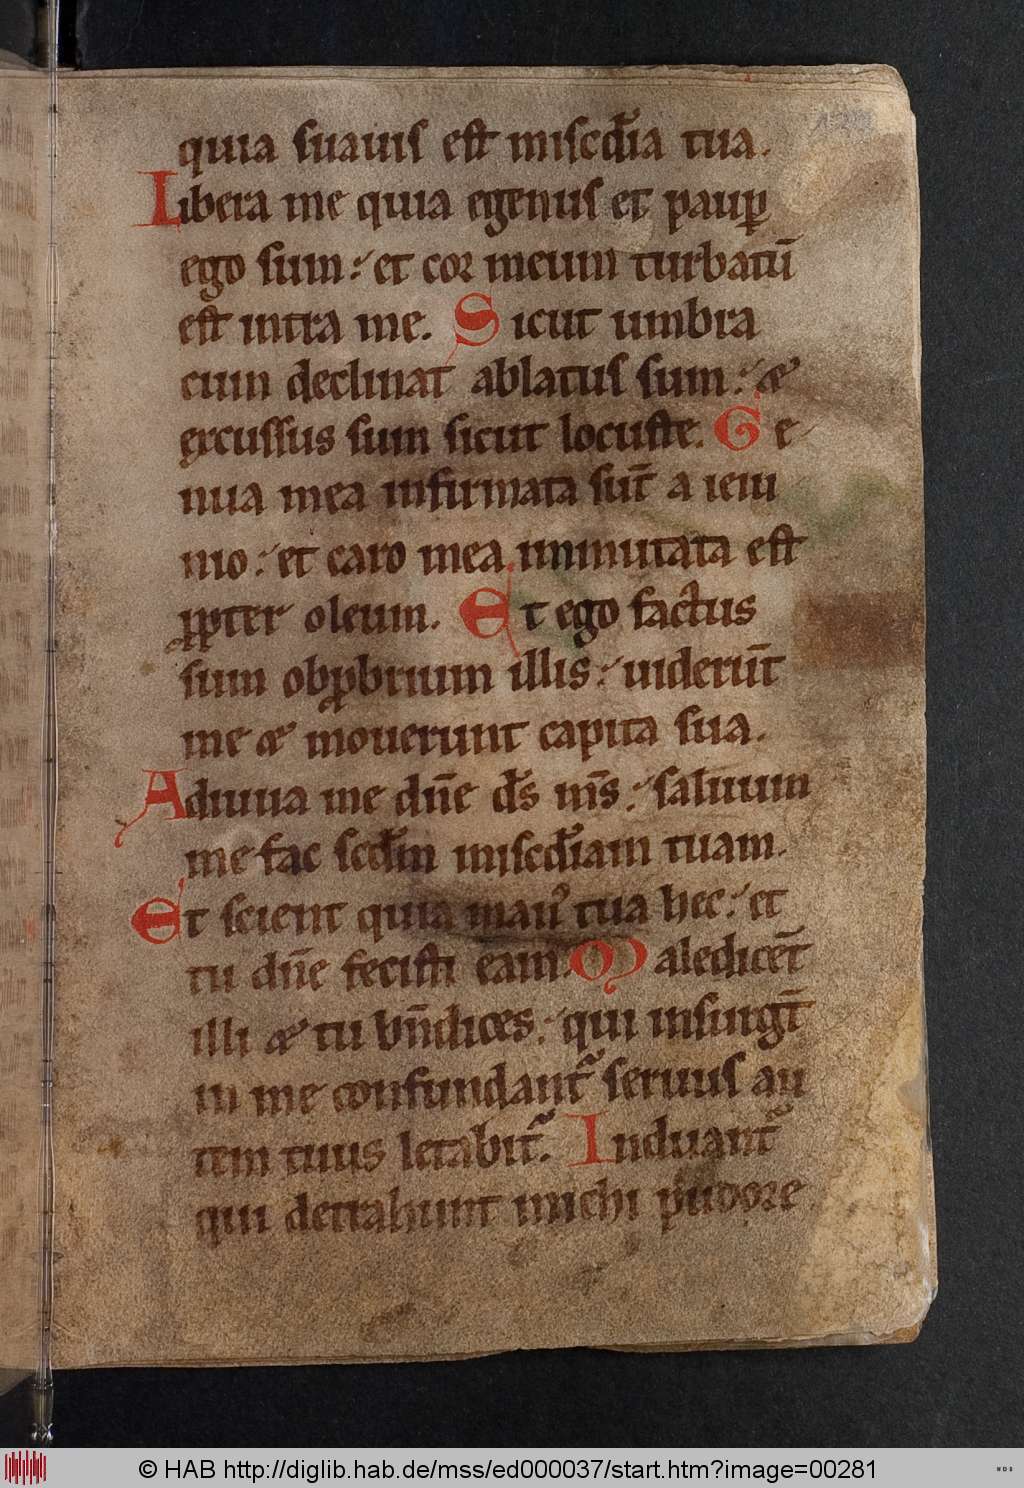 quia suauis est misc̄dia tua.
Libera me quia egenus et paup̱
ego sum: et cor meum turbatū
est intra me. Sicut umbra
cum declinat ablatus sum: &
excussus sum sicut locuste. Ge
nua mea infirmata sūt a ieiu
nio: et caro mea inmutata est
ꝓpter oleum. Et ego factus
sum obꝓbrium illis: uiderūt
me & mouerunt capita sua.
Adiuua me dn̄e ds̄ ms̄: saluum
me fac scdm̄ misc̄diam tuam.
Et scient quia manꝰ tua hec: et
tu dn̄e fecisti eam. Maledicēt
illi & tu bn̄dices: qui insurgt̄
in me confundant᷑ seruus au
tem tuus letabit᷑. Induant᷑
qui detrahunt michi pudore
© HAB http://diglib.hab.de/mss/ed000037/start.htm?image=00281